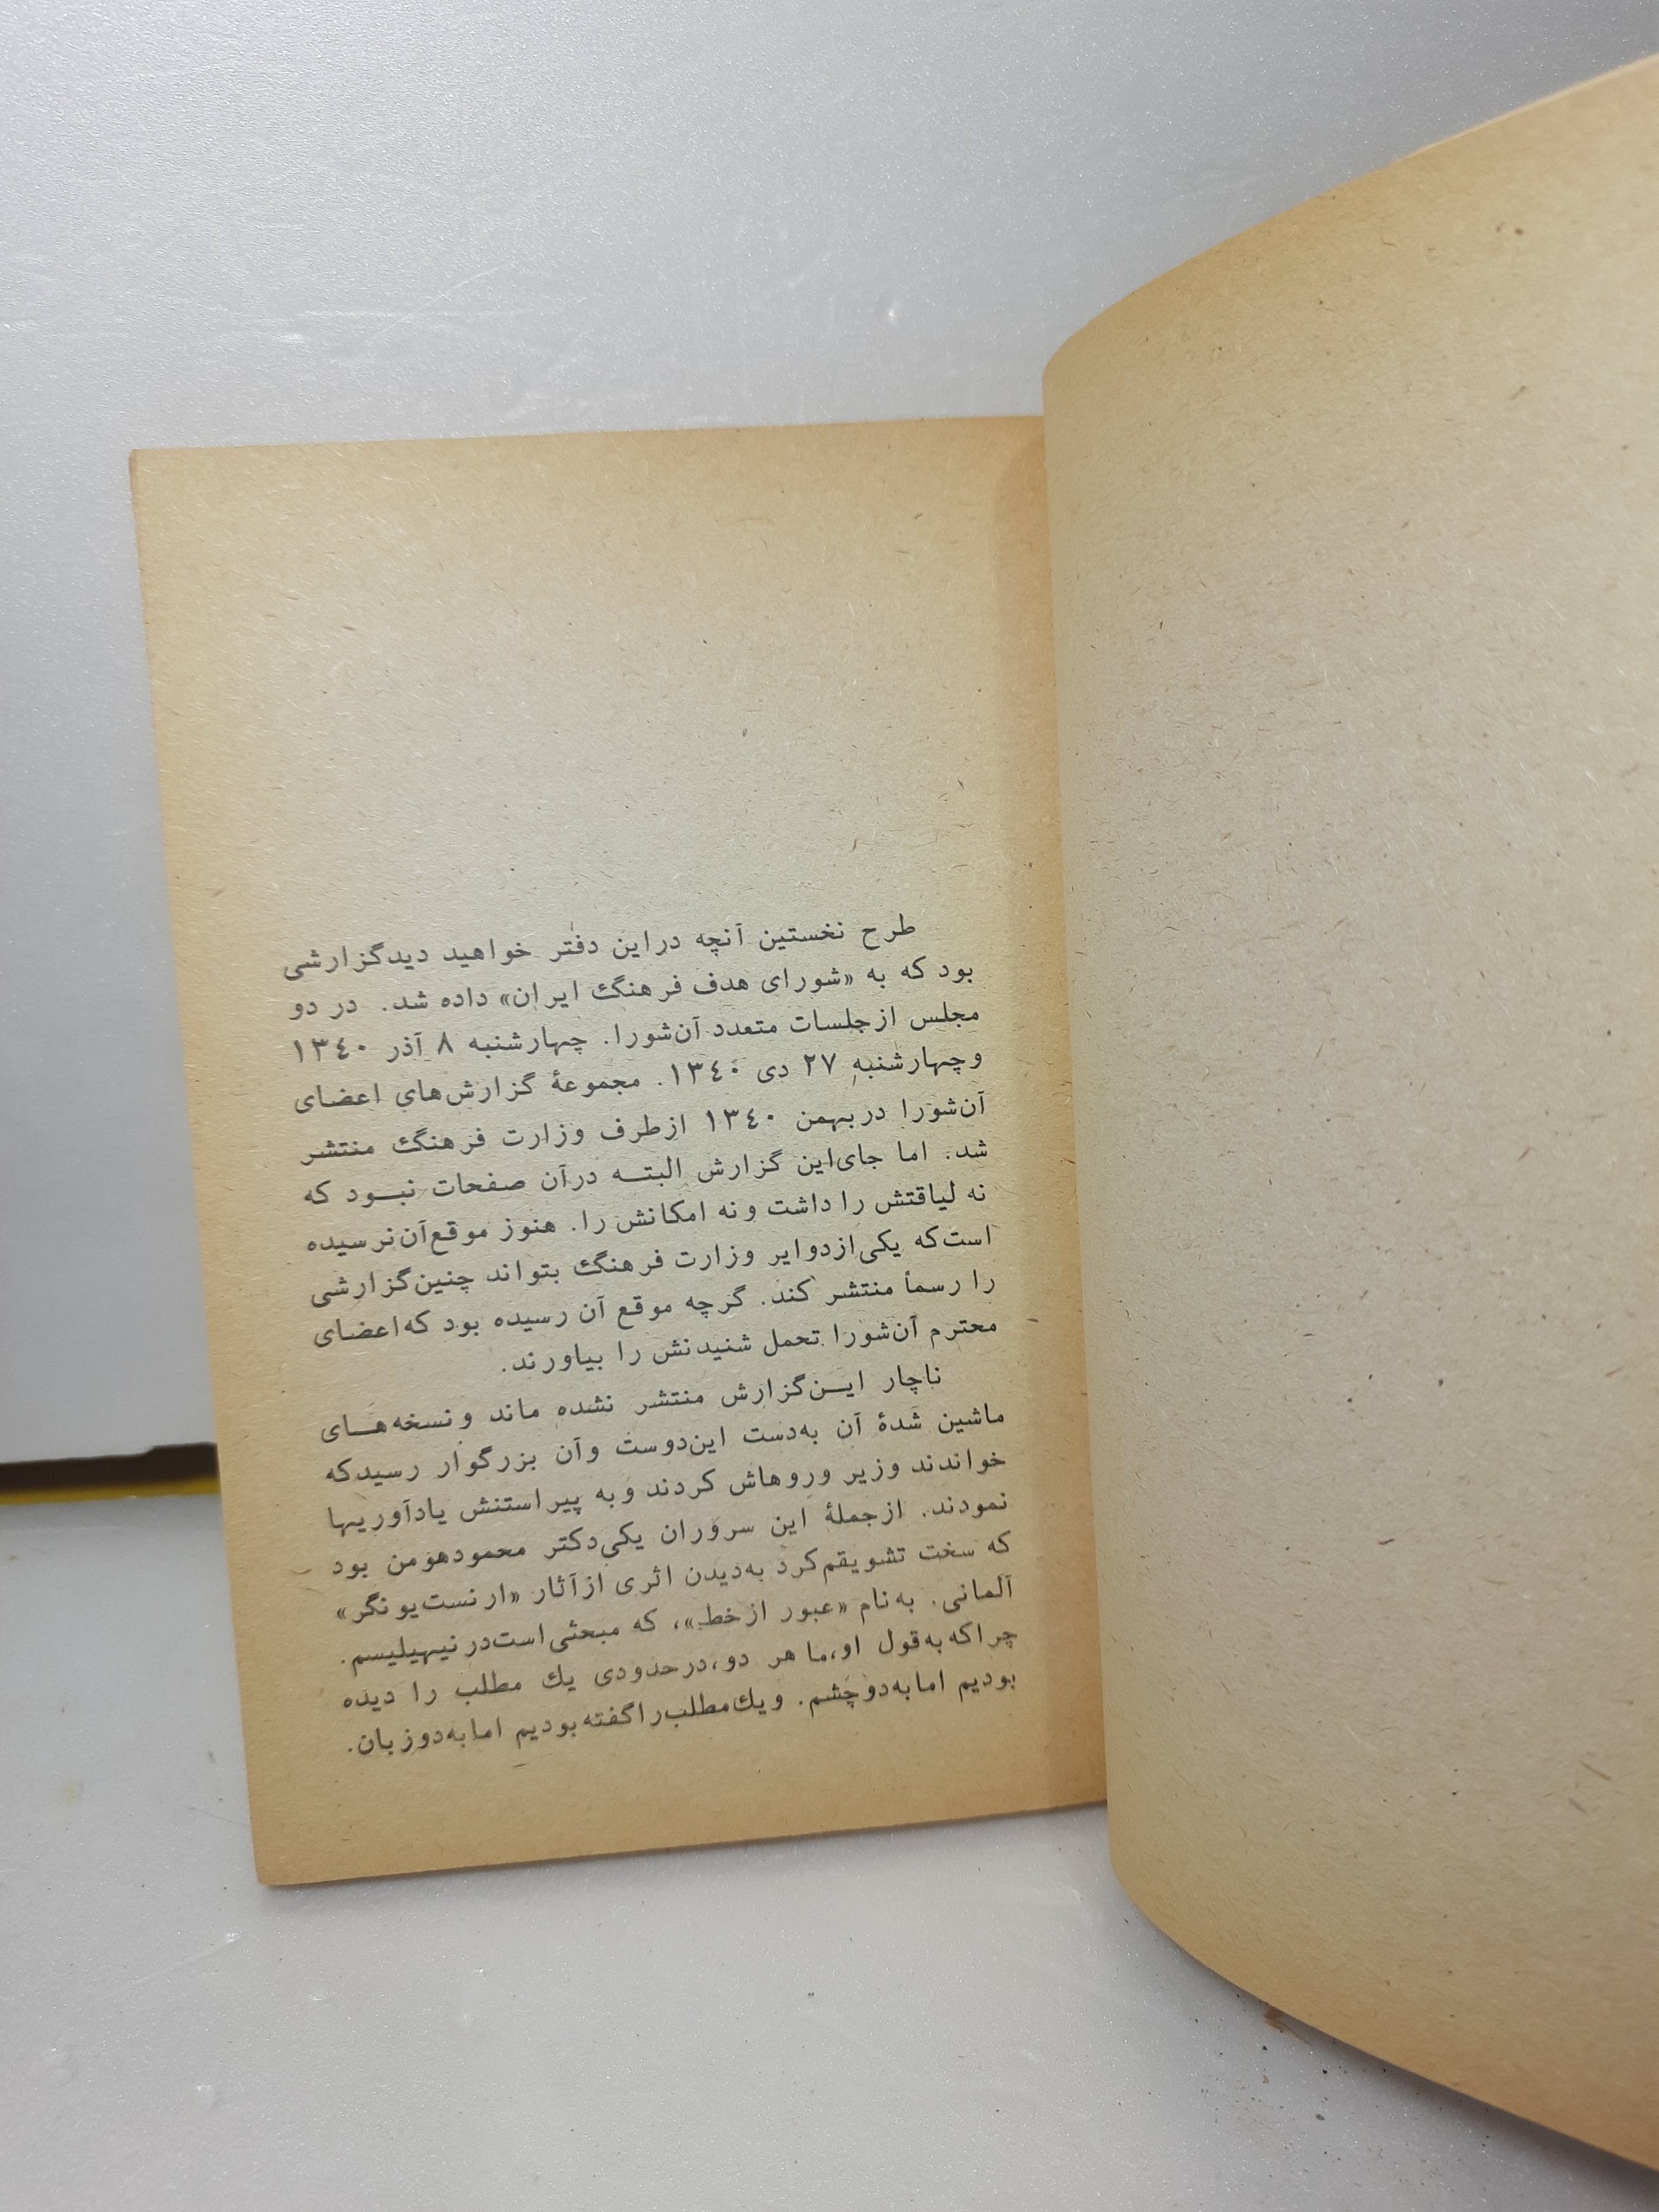 طرح نخستین آنچه دراین دفتر خواهید دیدگزارشی
بود که به «شورای هدف فرهنگ ایران» داده شد. در دو
مجلس ازجلسات متعدد آن‌شورا. چهارشنبه ۸ آذر ۱۳٤۰
وچهارشنبه ۲۷ دی ۱۳٤۰. مجموعهٔ گزارش‌های اعضای
آن‌شورا دربهمن ۱۳٤۰ ازطرف وزارت فرهنگ منتشر
شد. اما جای‌این گزارش البتــه درآن صفحات نبــود که
نه لیاقتش را داشت ونه امکانش را. هنوز موقع‌آن‌نرسیده
است‌که یکی‌ازدوایر وزارت فرهنگ بتواند چنین‌گزارشی
را رسماً منتشر کند. گرچه موقع آن رسیده بود که‌اعضای
محترم آن‌شورا تحمل شنیدنش را بیاورند.
ناچار ایــن‌گزارش منتشر نشده ماند ونسخه‌هــای
ماشین شدهٔ آن به‌دست این‌دوست وآن بزرگوار رسیدکه
خواندند وزیر وروهاش کردند وبه پیراستنش یادآوریها
نمودند. ازجملهٔ این سروران یکی‌دکتر محمودهومن بود
که سخت تشویقم‌کرد به‌دیدن اثری ازآثار «ارنست‌یونگر»
آلمانی. به‌نام «عبور ازخط»، که مبحثی‌است‌درنیهیلیسم.
چراکه‌به‌قول او،ما هر دو،درحدودی یك مطلب را دیده
بودیم امابه‌دوچشم. ویك‌مطلب‌راگفته‌بودیم امابه‌دوزبان.